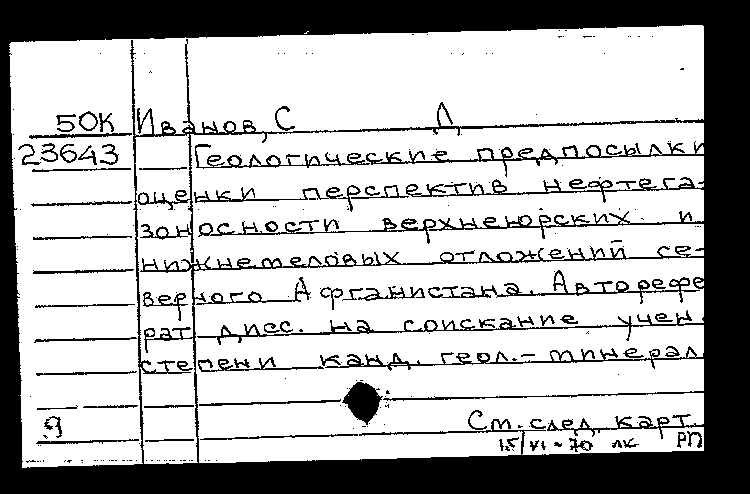 50К Иванов, С Д
23643 Геологические предпосылки
оценки перспектив нефтега-
зоносности верхнеюрских и
нижнемеловых отложений се-
верного Афганистана. Авторефе
рат дисс. на соискание учен.
степени канд. геол.-минерал.
9 См. след. карт.
15/VI-70 лк РП